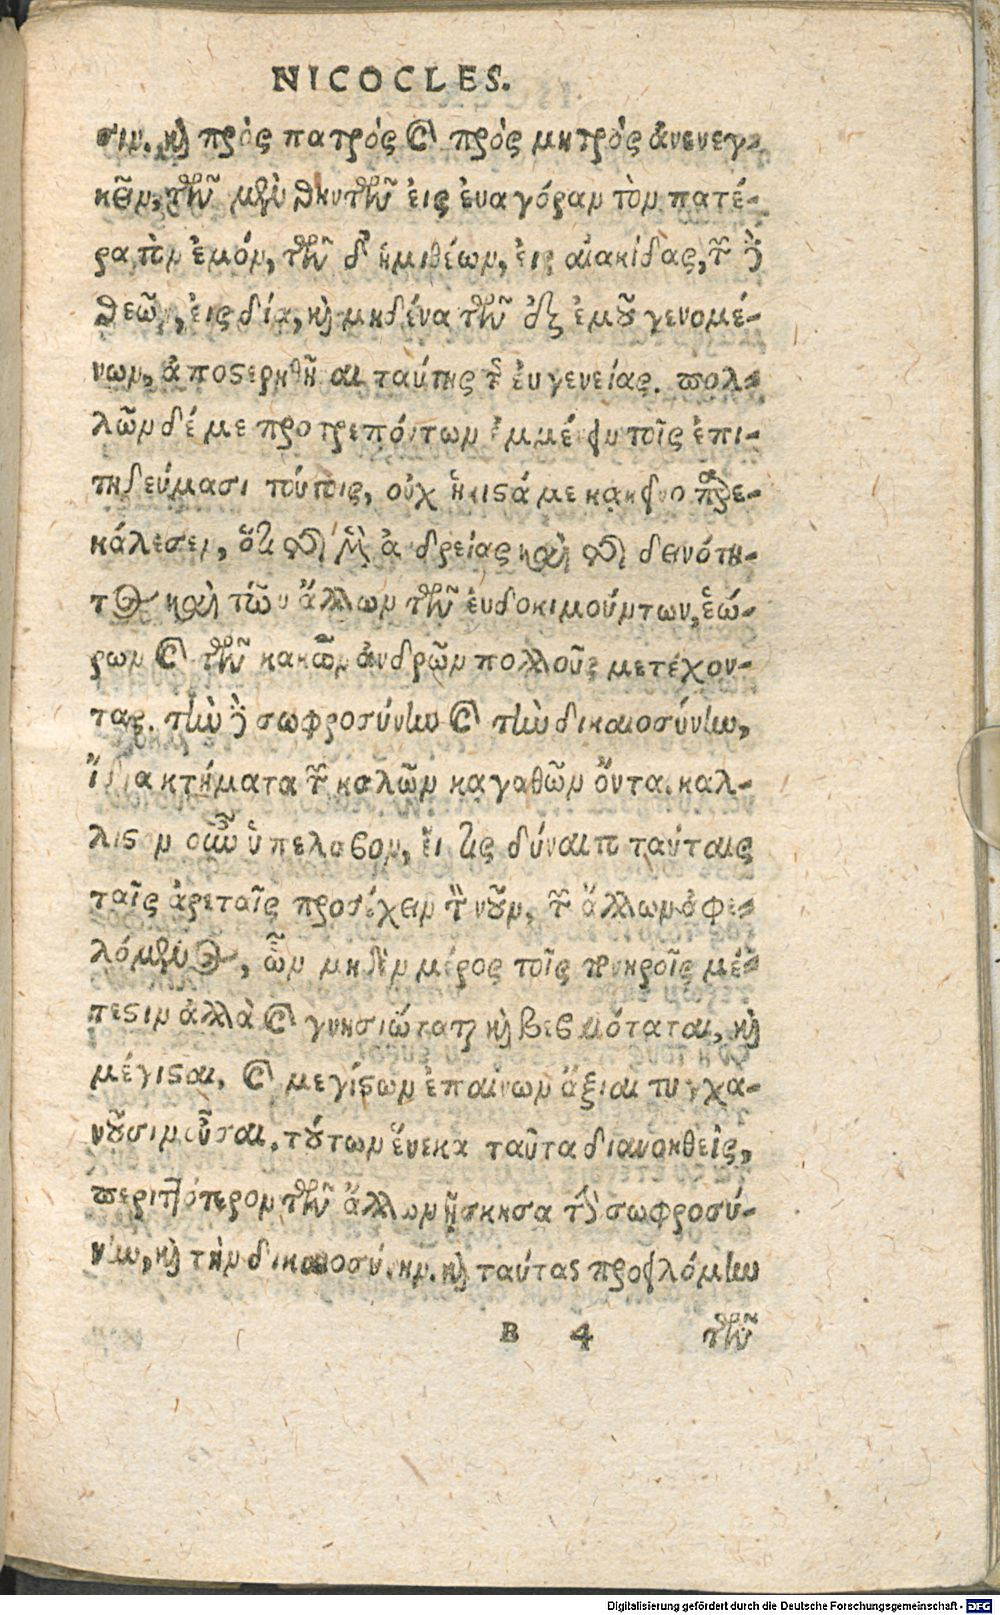 NICOCLES.
σιν. καὶ πρὸς πατρὸς καὶ πρὸς μητρὸς ἀνενεγ-
κεῖν, τῶν μὲν θνητῶν εἰς ἐυαγόραν τὸν πατέ-
ρα τὸν ἐμόν, τῶν δ' ἡμιθέων, εἰς αἰακίδας, τῶν δὲ
θεῶν, εἰς δία, καὶ μηδένα τῶν ἐξ ἐμοῦ γενομέ-
νων, ἀποστερηθῆναι ταύτης τῆς ἐυγενείας. πολ-
λῶν δέ με προτρεπόντων ἐμμένειν τοῖς ἐπι-
τηδεύμασι τούτοις, οὐχ ἥκιστά με κακεῖνο παρε-
κάλεσεν, ὅτι τῆς μὲν ἀνδρείας καὶ τῆς δεινότη-
τος καὶ τῶν ἄλλων τῶν ἐυδοκιμούντων, ἑώ-
ρων καὶ τῶν κακῶν ἀνδρῶν πολλοὺς μετέχον-
τας. τὴν δὲ σωφροσύνην καὶ τὴν δικαιοσύνην,
ἴδια κτήματα τῶν καλῶν καγαθῶν ὄντα. καλ-
λιστον οὖν ὑπέλαβον, εἴ τις δύναιτο ταύταις
ταῖς ἀρεταῖς προσέχειν τὸν νοῦν, τῶν ἄλλων ἀφε-
λόμενος, ὧν μηδὲν μέρος τοῖς πονηροῖς μέ-
τεστιν ἀλλὰ καὶ γνησιώταται καὶ βεβαιόταται, καὶ
μέγισται, καὶ μεγίστων ἐπαίνων ἄξιαι τυγχα-
νοῦσιν οὖσαι. τούτων ἕνεκα ταῦτα διανοηθεὶς,
περιττότερον τῶν ἄλλων ἤσκησα τὴν σωφροσύ-
νην, καὶ τὴν δικαιοσύνην. καὶ ταύτας προειλόμην
B 4 τῶν
Digitalisierung gefördert durch die Deutsche Forschungsgemeinschaft - DFG